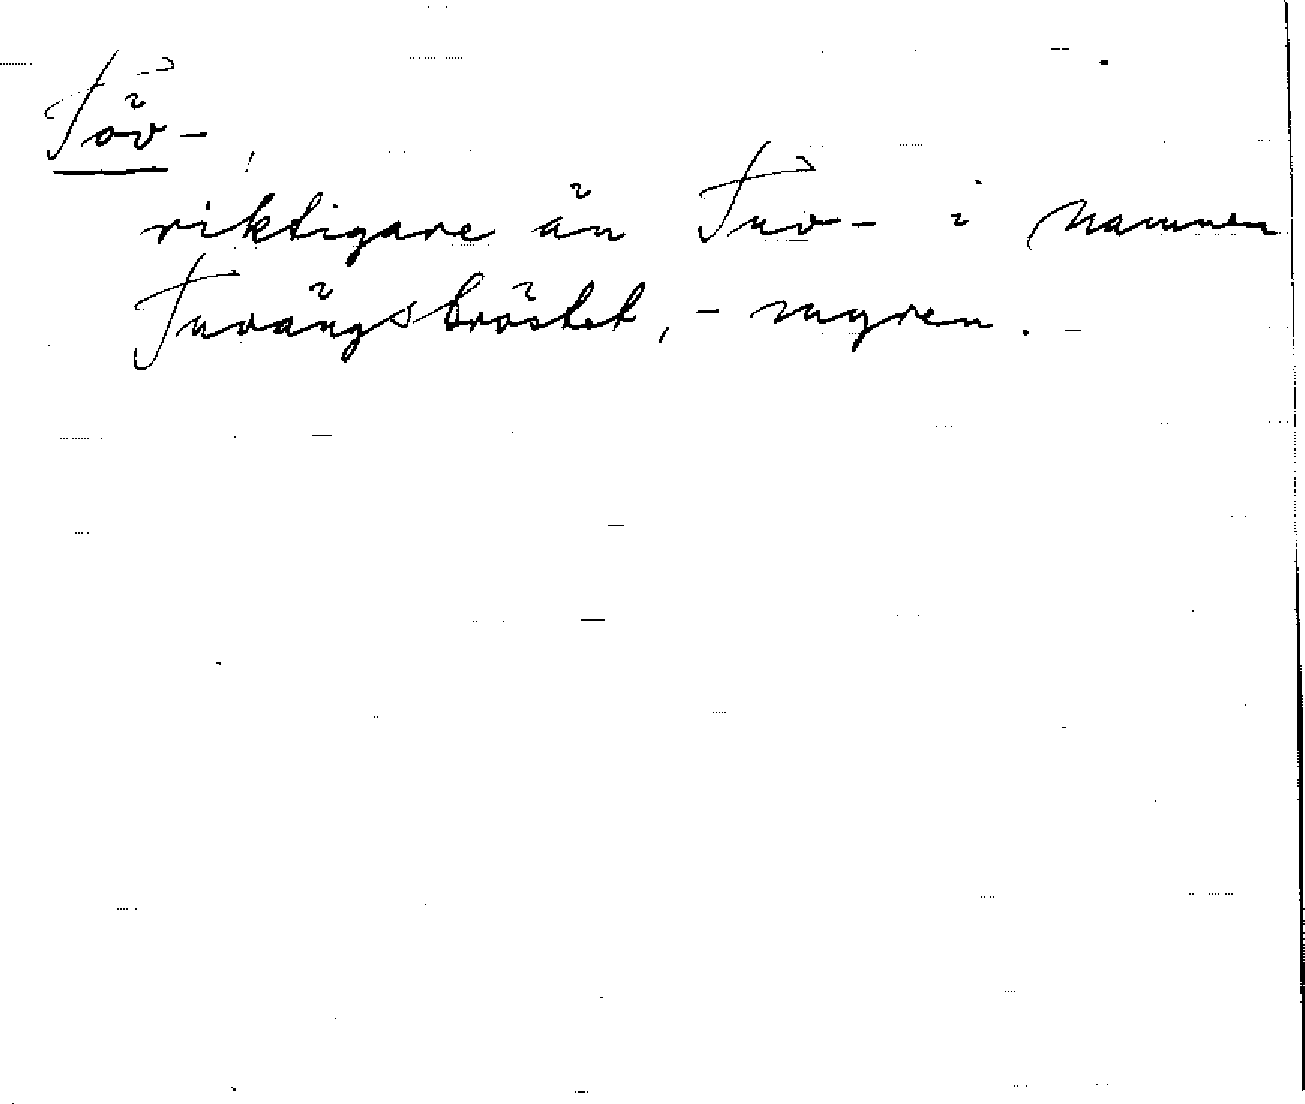 Töv-,
riktigare än Tuv- i namnen
Tuvängströsket, -myren.